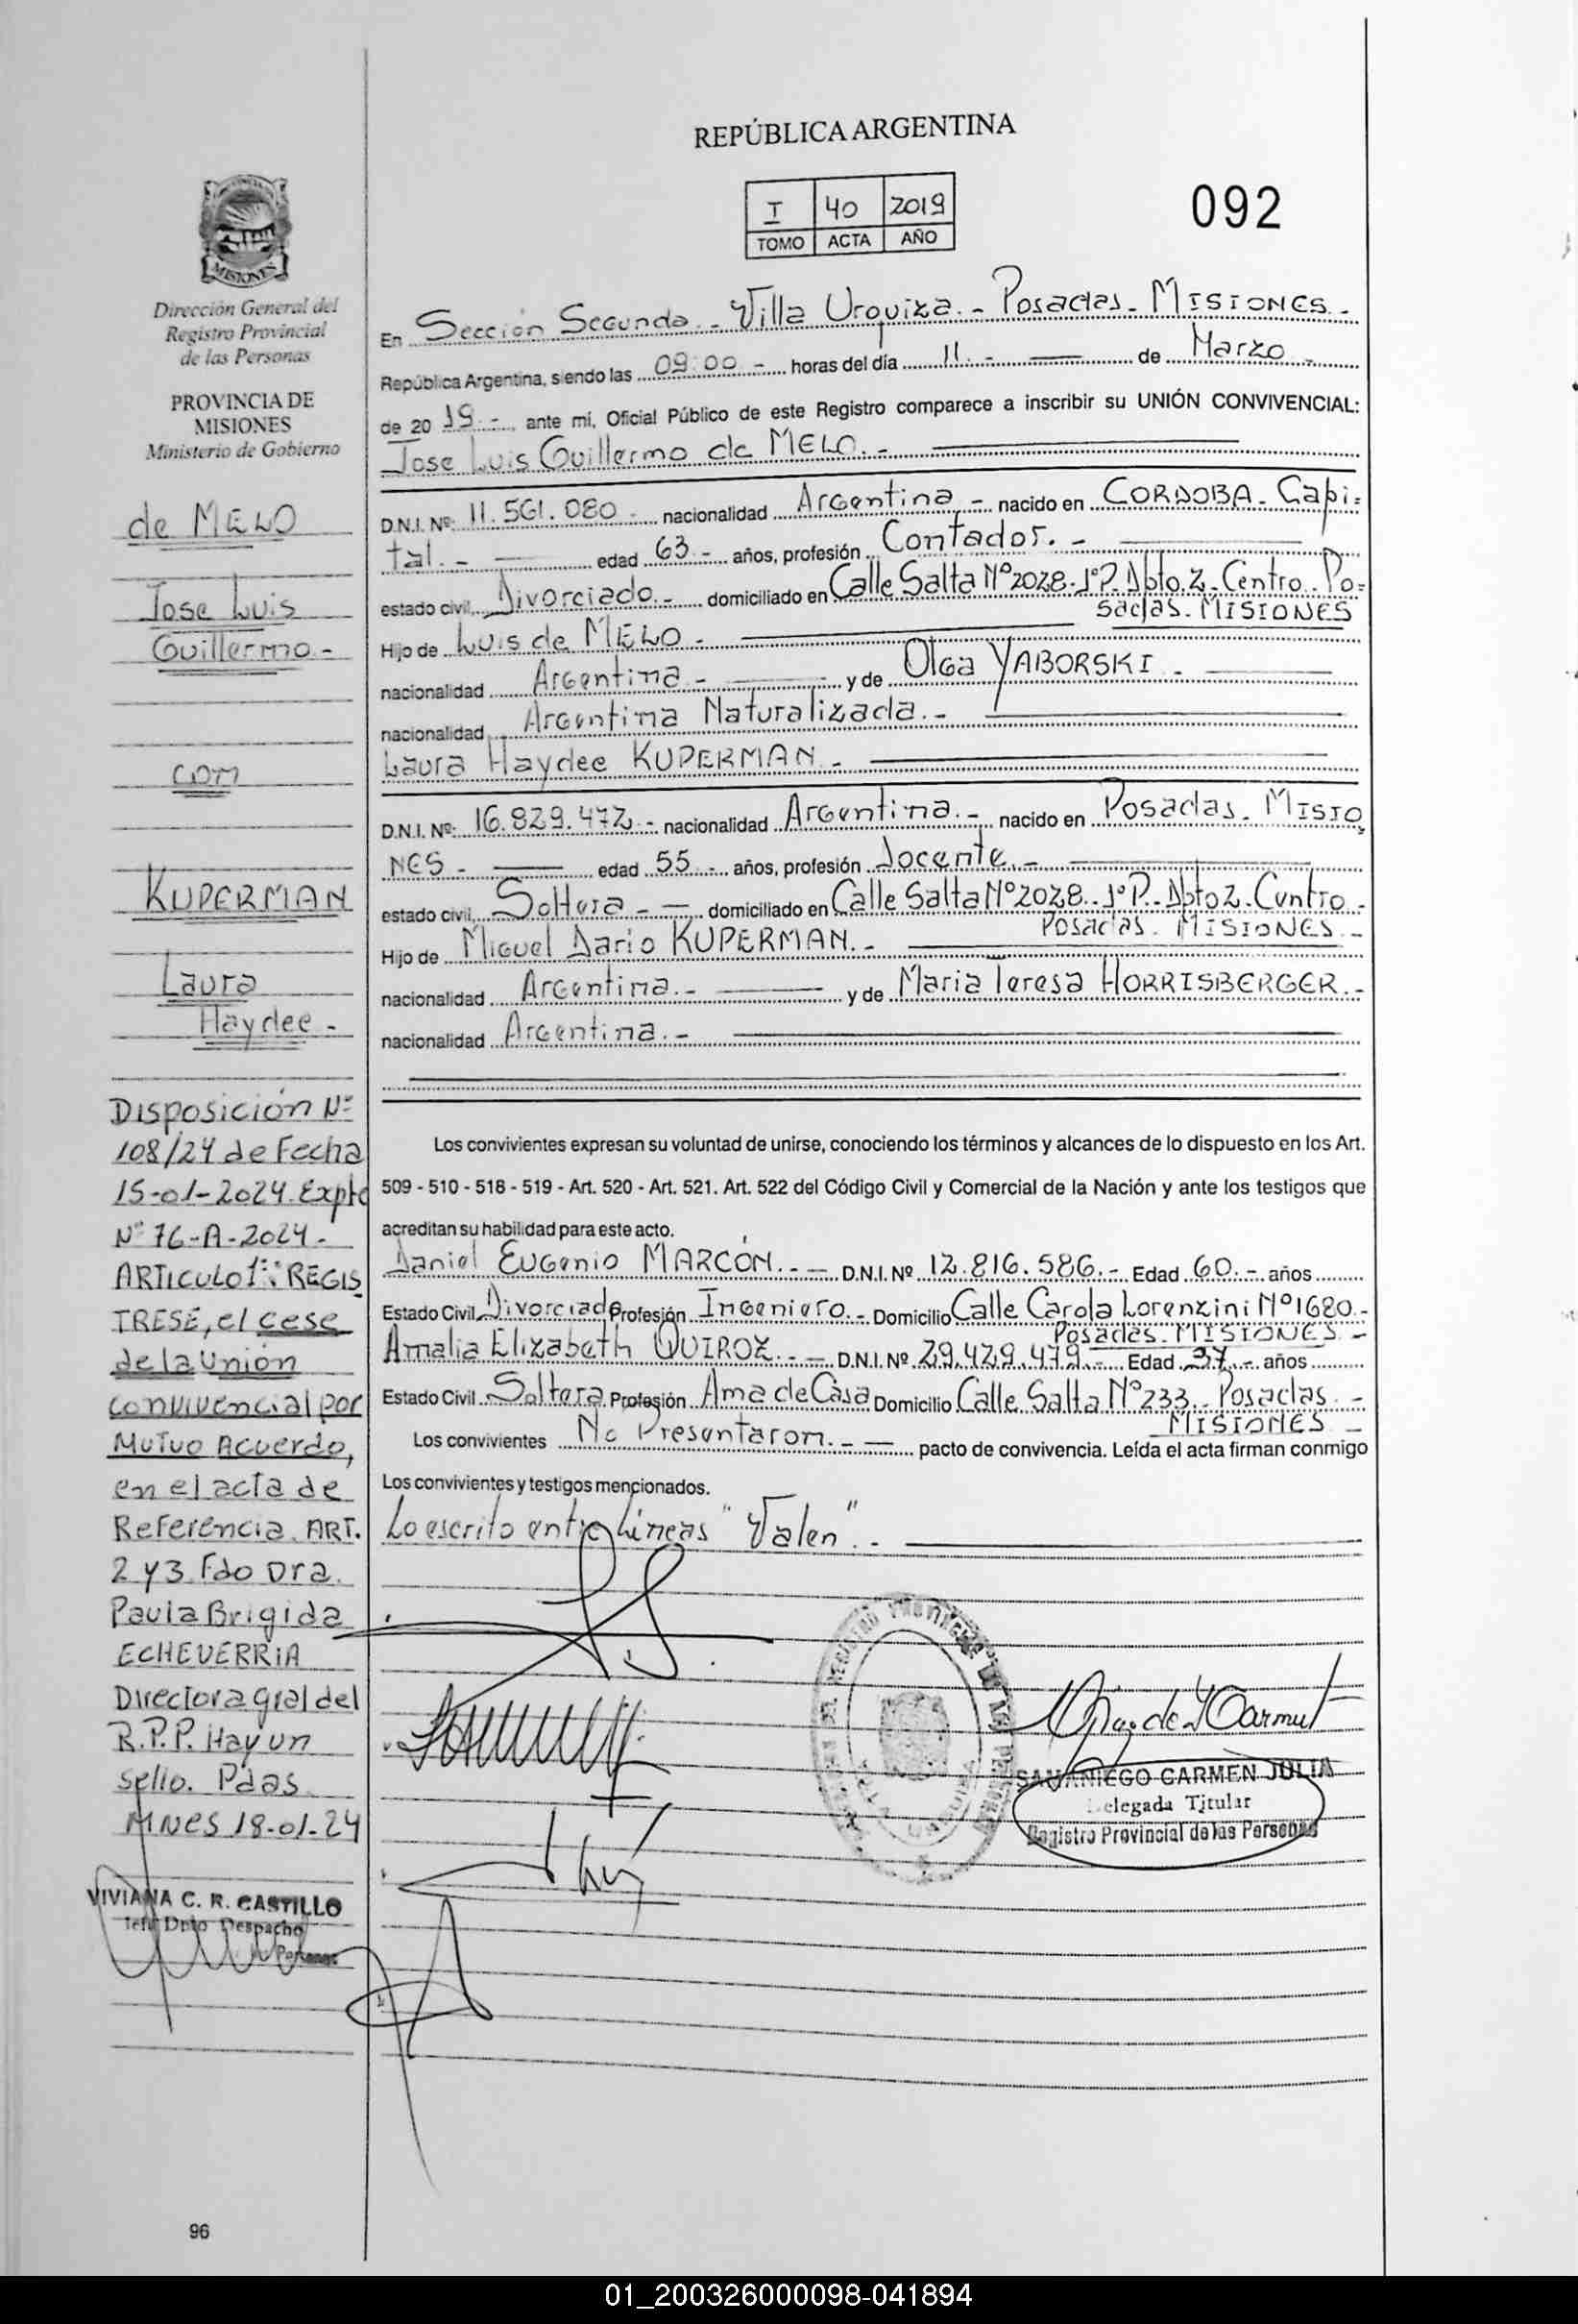 REPÚBLICA ARGENTINA
I 40 2019
TOMO ACTA AÑO
092
MISIONES
Dirección General del
Registro Provincial
de las Personas
PROVINCIA DE
MISIONES
Ministerio de Gobierno
de MELO
Jose Luis
Guillermo.-
con
KUPERMAN
Laura
Haydee.-
Disposición N°
108/24 de Fecha
15-01-2024. Expte
N° 76-A-2024.-
ARTICULO 1°: REGIS
TRESE, el cese
de la union
convivencial por
Mutuo Acuerdo,
en el acta de
Referencia. ART.
2 y 3. Fdo Dra.
Paula Brigida
ECHEVERRIA
Directora gral del
R.P.P. Hay un
sello. Pdas
Mnes 18-01-24
VIVIANA C. R. CASTILLO
Jefe Dpto Despacho
96
En Sección Segunda.- Villa Urquiza.- Posadas- MISIONES.-
República Argentina, siendo las 09:00 - horas del día 11.- de Marzo -
de 20 19.- ante mi, Oficial Público de este Registro comparece a inscribir su UNIÓN CONVIVENCIAL:
Jose Luis Guillermo de MELO.-
D.N.I. Nº: 11.561.080 - nacionalidad Argentina - nacido en CORDOBA- Capi=
tal.- edad 63.- años, profesión Contador.-
estado civil, Divorciado.- domiciliado en Calle Salta N°2028-1°P.Dpto.2-Centro-Po=
sadas- MISIONES
Hijo de Luis de MELO-
nacionalidad Argentina- y de Olga YABORSKI-
nacionalidad Argentina Naturalizada.-
Laura Haydee KUPERMAN.-
D.N.I. Nº: 16.829.472.- nacionalidad Argentina.- nacido en Posadas- MISIO
NES- edad 55.- años, profesión Docente.-
estado civil, Soltera.- domiciliado en Calle Salta N°2028-1°P-Dpto2-Centro-
Posadas- MISIONES.-
Hijo de Miguel Dario KUPERMAN.-
nacionalidad Argentina.- y de Maria Teresa HORRISBERGER.-
nacionalidad Argentina.-
Los convivientes expresan su voluntad de unirse, conociendo los términos y alcances de lo dispuesto en los Art.
509 - 510 - 518 - 519 - Art. 520 - Art. 521. Art. 522 del Código Civil y Comercial de la Nación y ante los testigos que
acreditan su habilidad para este acto.
Daniel Eugenio MARCÓN.- D.N.I. Nº 12.816.586.- Edad 60.- años
Estado Civil Divorciado Profesión Ingeniero.- Domicilio Calle Carola Lorenzini N°1680.-
Posadas- MISIONES.-
Amalia Elizabeth QUIROZ.- D.N.I. Nº 29.429.479.- Edad 37.- años
Estado Civil Soltera Profesión Ama de Casa Domicilio Calle Salta N°233.- Posadas.-
MISIONES.-
Los convivientes No Presentaron.- pacto de convivencia. Leída el acta firman conmigo
Los convivientes y testigos mencionados.
Lo escrito entre Lineas "Valen".-
SAMANIEGO CARMEN JULIA
Delegada Titular
Registro Provincial de las Personas
01_200326000098-041894